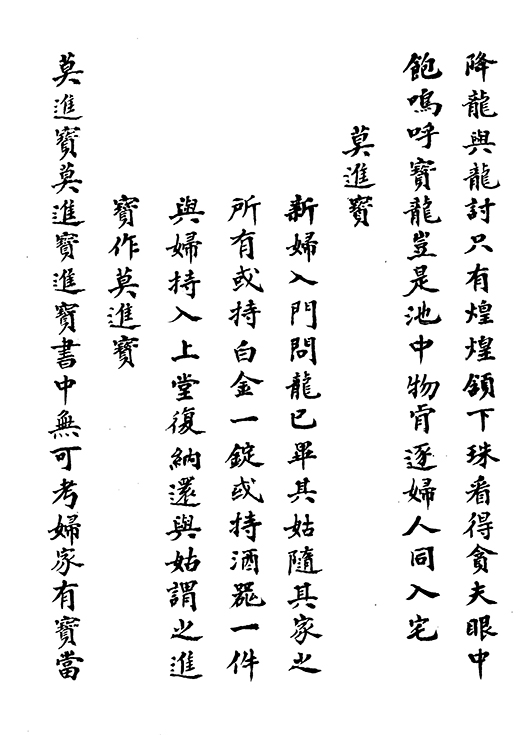 降龍與龍討只有煌煌頷下珠看得貪夫眼中
飽嗚呼寶龍豈是池中物肯逐婦人同入宅
莫進寶
新婦入門問龍已畢其姑隨其家之
所有或持白金一錠或持酒器一件
與婦持入上堂復納還與姑謂之進
寶作莫進寶
莫進寶莫進寶進寶書中無可考婦家有寶當